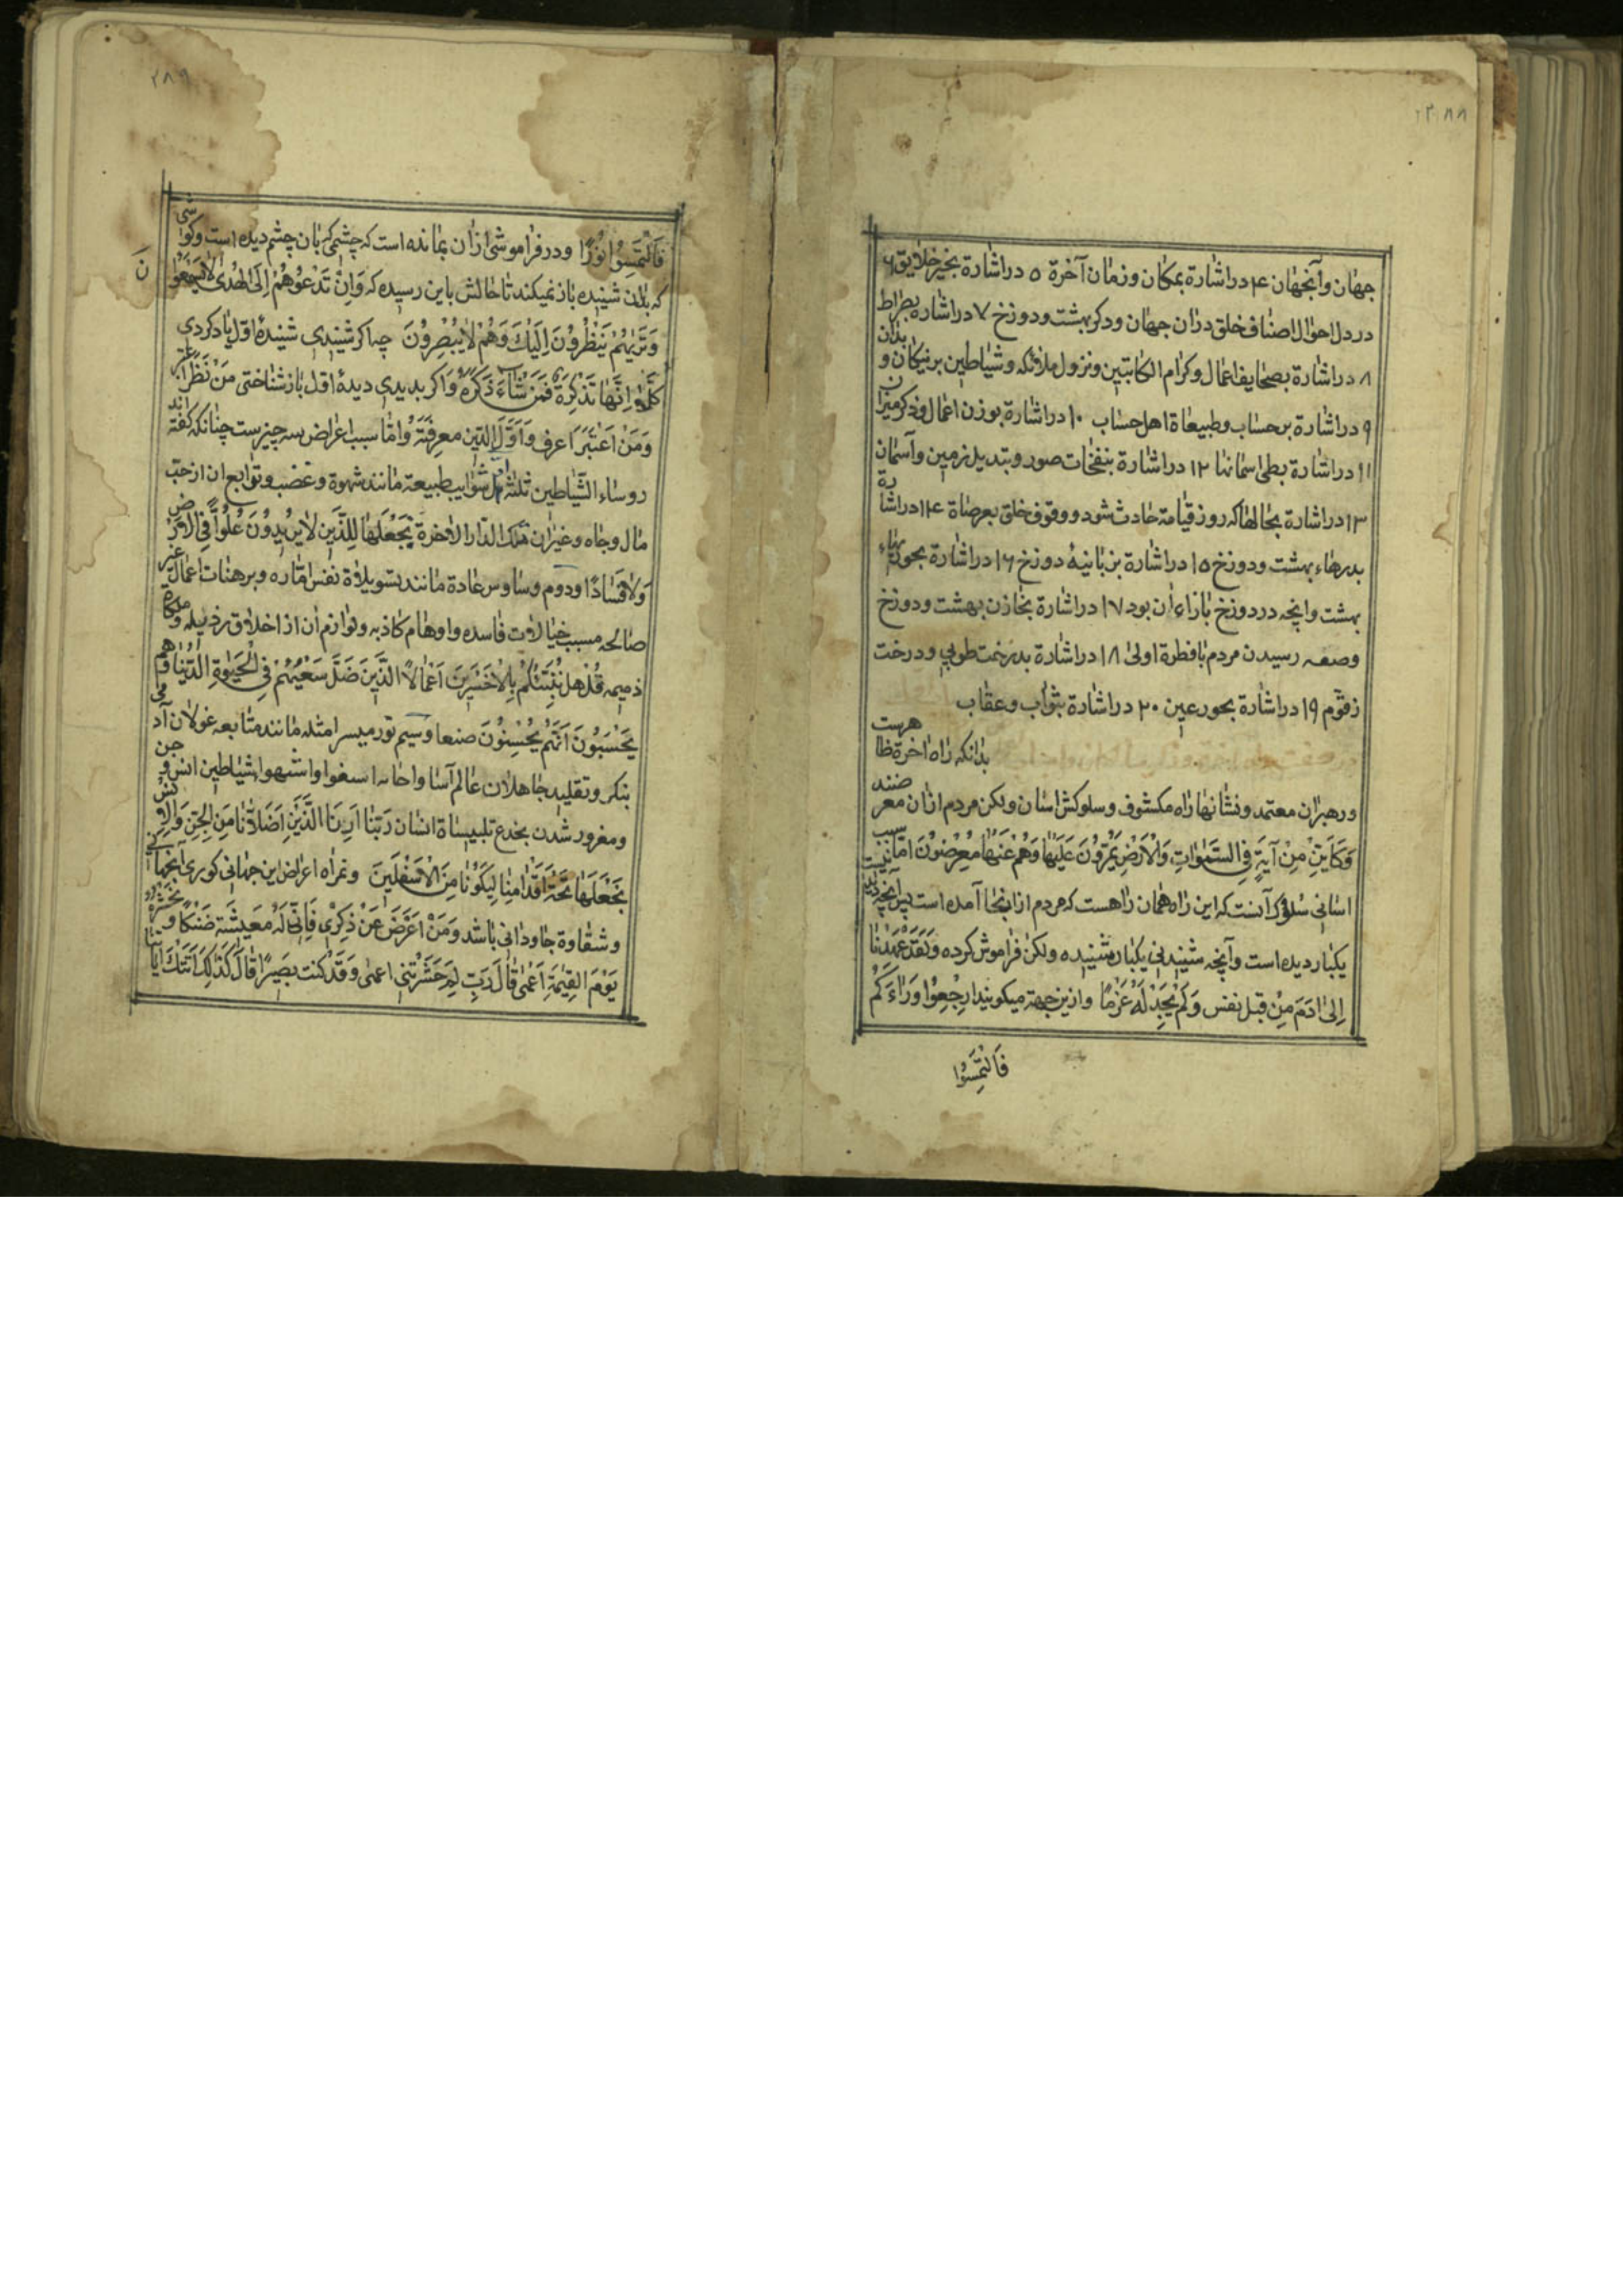 ٢٨٨
جهان وآنجهان ٤ در اشارة بمکان وزمان آخرة ٥ در اشارة بحشر خلایق ٦
در دل احوال اصناف خلق در ان جهان وذکر بهشت ودوزخ ٧ در اشاره بصراط
٨ در اشارة بصحایف اعمال وکرام الکاتبین ونزول ملائکه وشیاطین بر نیکان و بدان
٩ در اشارة بر حساب وطبیعاة اهل حساب ١٠ در اشارة بوزن اعمال وذکر میزان
١١ در اشارة بطی اسمانها ١٢ در اشارة بنفخات صور وتبدیل زمین وآسمان
١٣ در اشارة بحالها که روز قیامة حادث شود ووقوف خلق بعرصاة ١٤ در اشارة
بدرهاء بهشت ودوزخ ١٥ در اشارة بزبانیهٔ دوزخ ١٦ در اشارة بجویهاء
بهشت وانچه در دوزخ بازاء آن بود ١٧ در اشارة بخازن بهشت ودوزخ
وصعه رسیدن مردم بافطرة اولی ١٨ در اشارة بدرخت طوبی ودرخت
زقوم ١٩ در اشارة بحور عین ٢٠ در اشارة بثواب وعقاب
بدانکه راه آخرة ظاهرست
ورهبران معتمد ونشانهاء راه مکشوف وسلوکش اسان ولکن مردم ازان معرضند
وَکَاَیِّنْ مِنْ آیَةٍ فِی السَّمٰوٰاتِ وَالْاَرْضِ یَمُرُّونَ عَلَیْهٰا وَهُمْ عَنْهٰا مُعْرِضُونَ امّا سبب
اسانی سلوک آنست که این راه همان راهست که مردم از اینجا آمده است پس آنچه دیدنیست
یکبار دیده است وآنچه شنیدنی یکبار شنیده ولکن فراموش کرده وَلَقَدْ عَهِدْنٰا
اِلیٰ ادَمَ مِنْ قبل نفس وَلَمْ نَجِدْ لَهُ عَزْمًا وازین جهة میکویند ارجِعُوا وَرٰاءَکُمْ
فَالْتَمِسُوْا
٢٨٩
فَالْتَمِسُوْا نُوْرًا ودر فراموشی ازان بمانده است که چشمی که بان چشم دیده است وکوشی
که بدان شنیده باز نمیکند تا حالش باین رسیده که وَاِنْ تَدْعُوهُمْ اِلَی الْهُدیٰ لاٰ یَسْمَعُوا
وَتَرٰیهُمْ یَنْظُرُونَ اِلَیْكَ وَهُمْ لاٰ یُبْصِرُونَ چه اکر شنیدی شنیدهٔ اوّل یاد کردی
کَلّٰا اِنَّهٰا تَذْکِرَةٌ فَمَنْ شٰاءَ ذَکَرَهُ وَاکر بدیدی دیدهٔ اوّل بازشناختی مَنْ نَظَرَ اعْتَبَرَ
وَمَنْ اعْتَبَرَ عرف وَاَوَّلُ الدّین معرِفَتَهُ وامّا سبب اعراض سه چیزست چنانکه گفته اند
روساء الشّیاطین ثلثه اول شوایب طبیعة مانند شهوة وغضب وتوابع ان از حبّ
مال وجاه وغیر ان تِلْكَ الدّار الاٰخرة نَجْعَلُهٰا لِلَّذینَ لاٰ یُریدُونَ عُلُوًّا فِی الْاَرْض
وَلاٰ فَسٰادًا ودوم وساوس عادة مانند تسویلاة نفس امّاره وبرهنات اعمال غیر
صالحه مسبب خیالات فاسده واوهام کاذبه ولوازم ان از اخلاق رذیله وملکاة
ذمیمه قُلْ هَل نُنَبِّئُکُمْ بِالْاَخْسَرینَ اَعْمٰالًا الَّذینَ ضَلَّ سَعْیُهُمْ فِی الْحَیٰوةِ الدُّنْیٰا وَهُم
یَحْسَبُونَ اَنَّهُمْ یُحْسِنُونَ صنعا وسیم نوامیس امثله مانند متابعه غولان آدمی
پیکر وتقلید جاهلان عالم آسا واجابه استغوا واستهوا شیاطین انس وجن
ومغرور شدن بخدع تلبیساة انسان رَبَّنٰا اَرِنَا الَّذَیْنِ اَضَلاّٰنٰا مِنَ الْجِنِّ وَالاِنْس
نَجْعَلْهُمٰا تَحْتَ اَقْدٰامِنٰا لِیَکُونٰا مِنَ الْاَسْفَلینَ وثمراه اعراض این جهانی کوری آنجهانی
وشقاوة جاودانی باشد وَمَنْ اَعْرَضَ عَنْ ذِکْری فَاِنَّ لَهُ مَعیشَةً ضَنْکًا وَنَحْشُرُهُ
یَوْمَ القِیٰمَةِ اَعْمٰی قٰالَ رَبِّ لِمَ حَشَرْتَنی اعمیٰ وَقَدْ کنت بَصیرًا قٰالَ کَذٰلِكَ اَتَتْكَ ایٰاتُنٰا